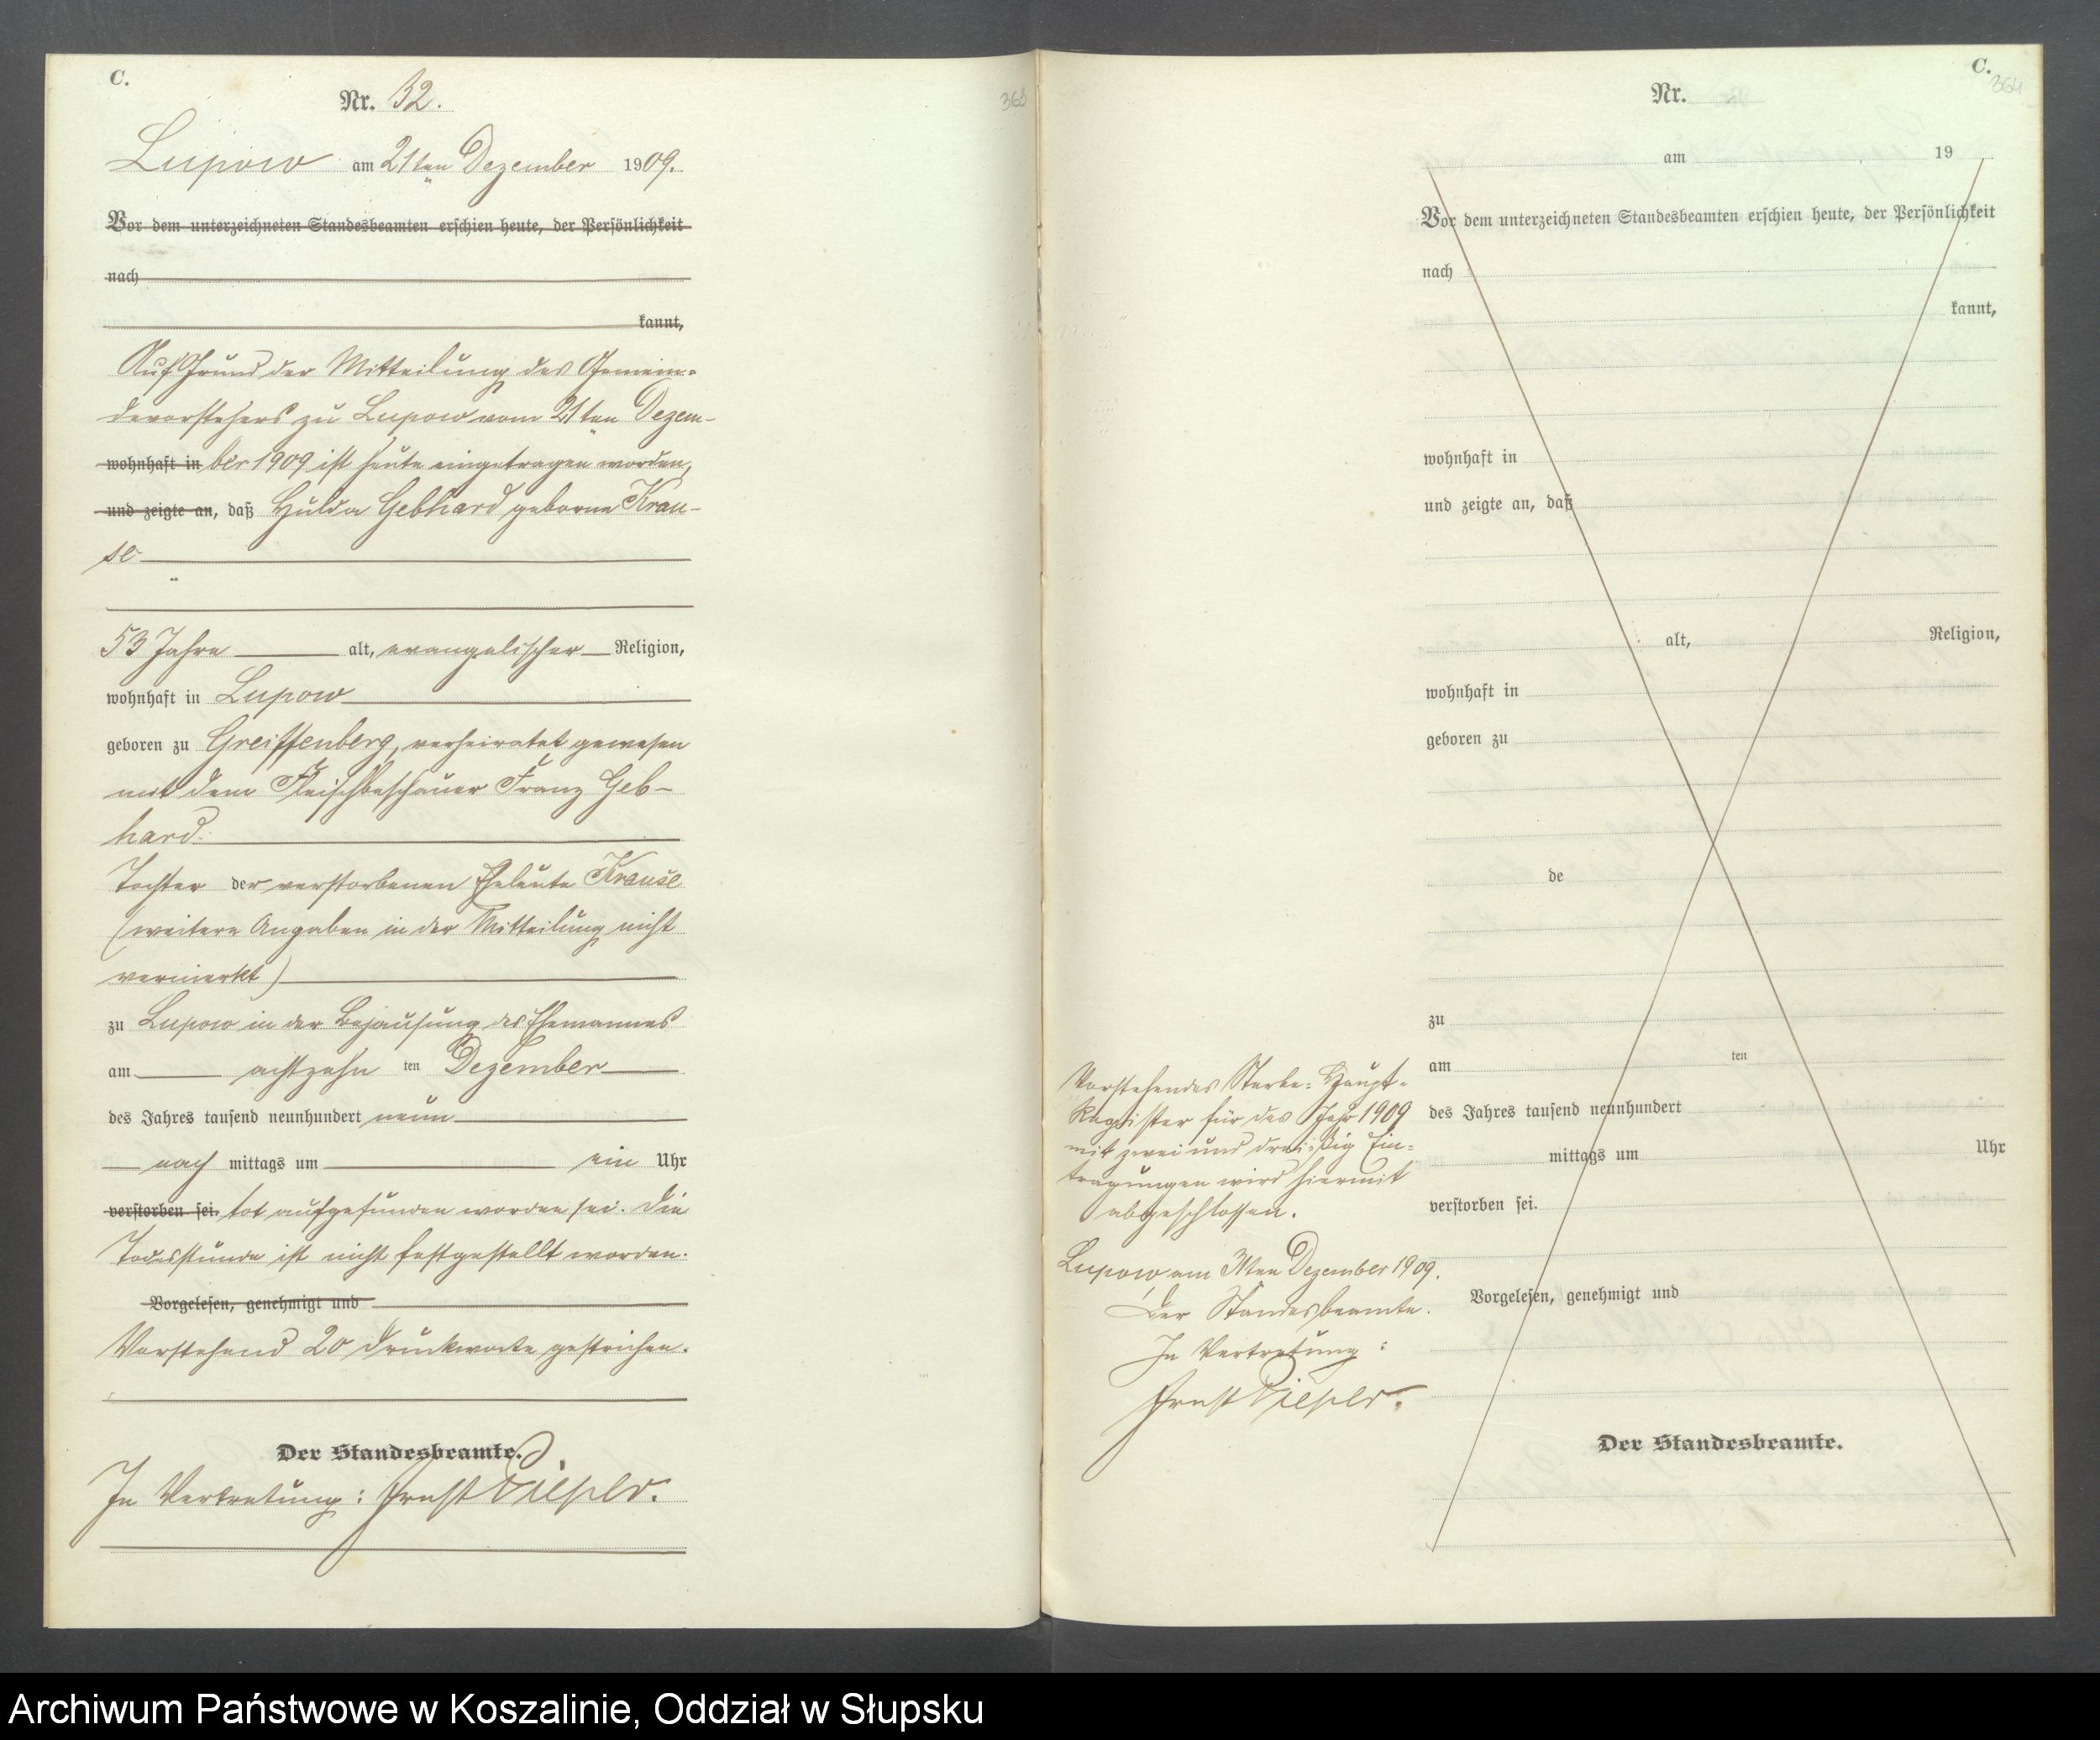 C.
Nr. 32.
365
Lupow am 21ten Dezember 1909.
Vor dem unterzeichneten Standesbeamten erschien heute, der Persönlichkeit
nach
kannt,
Auf Grund der Mitteilung des Gemein=
devorstehers zu Lupow vom 21ten Dezem-
wohnhaft in ber 1909 ist heute eingetragen worden,
und zeigte an, daß Hulda Gebhard geborne Krau-
se
53 Jahre alt, evangelischer Religion,
wohnhaft in Lupow
geboren zu Greiffenberg, verheiratet gewesen
mit dem Fleischbeschauer Franz Geb-
hard.
Tochter der verstorbenen Eheleute Krause
(weitere Angaben in der Mitteilung nicht
vermerkt)
zu Lupow in der Behausung des Ehemannes
am achtzehn ten Dezember
des Jahres tausend neunhundert neun
nach mittags um ein Uhr
verstorben sei. tot aufgefunden worden sei. Die
Todesstunde ist nicht festgestellt worden.
Vorgelesen, genehmigt und
Vorstehend 20 Druckworte gestrichen.
Der Standesbeamte.
In Vertretung: Ernst Piepler.
C.
364
Nr.
am 19
Vor dem unterzeichneten Standesbeamten erschien heute, der Persönlichkeit
nach
kannt,
wohnhaft in
und zeigte an, daß
alt, Religion,
wohnhaft in
geboren zu
de
zu
am ten
des Jahres tausend neunhundert
mittags um Uhr
verstorben sei.
Vorgelesen, genehmigt und
Der Standesbeamte.
Vorstehendes Sterbe=Haupt-
Register für das Jahr 1909
mit zwei und dreißig Ein=
tragungen wird hiermit
abgeschlossen.
Lupow am 31ten Dezember 1909.
Der Standesbeamte.
In Vertretung:
Ernst Piepler.
Archiwum Państwowe w Koszalinie, Oddział w Słupsku